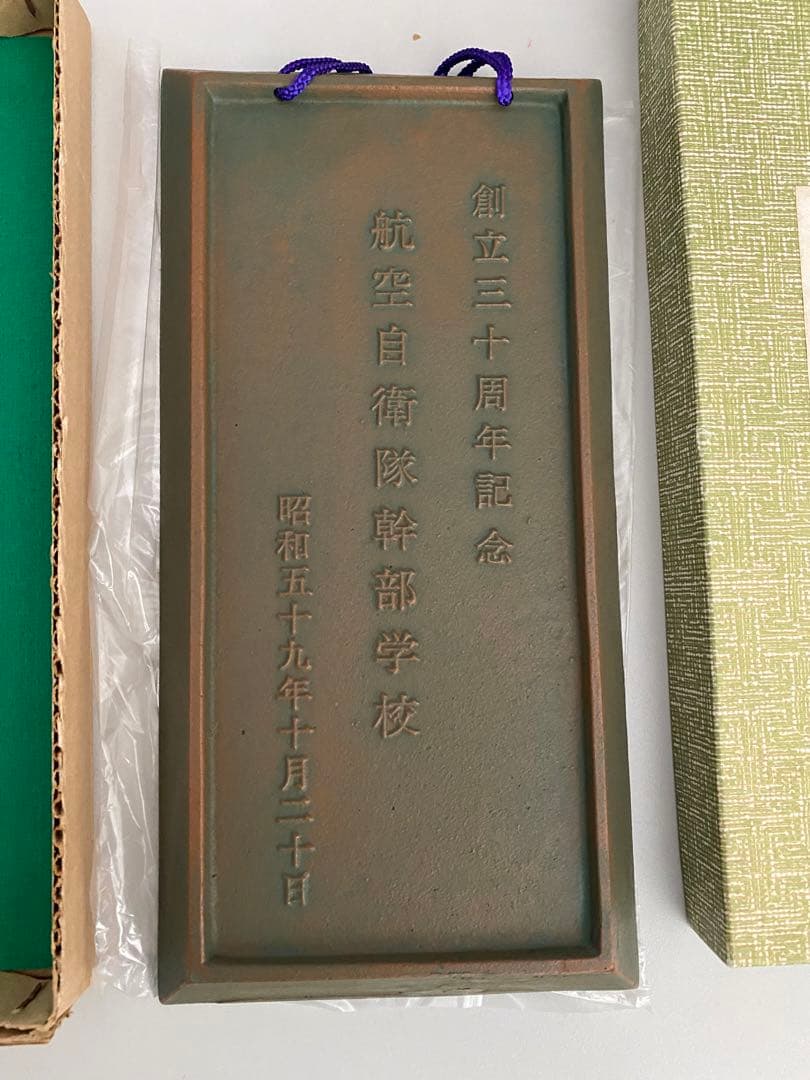 創立三十周年記念
航空自衛隊幹部学校
昭和五十九年十月二十日